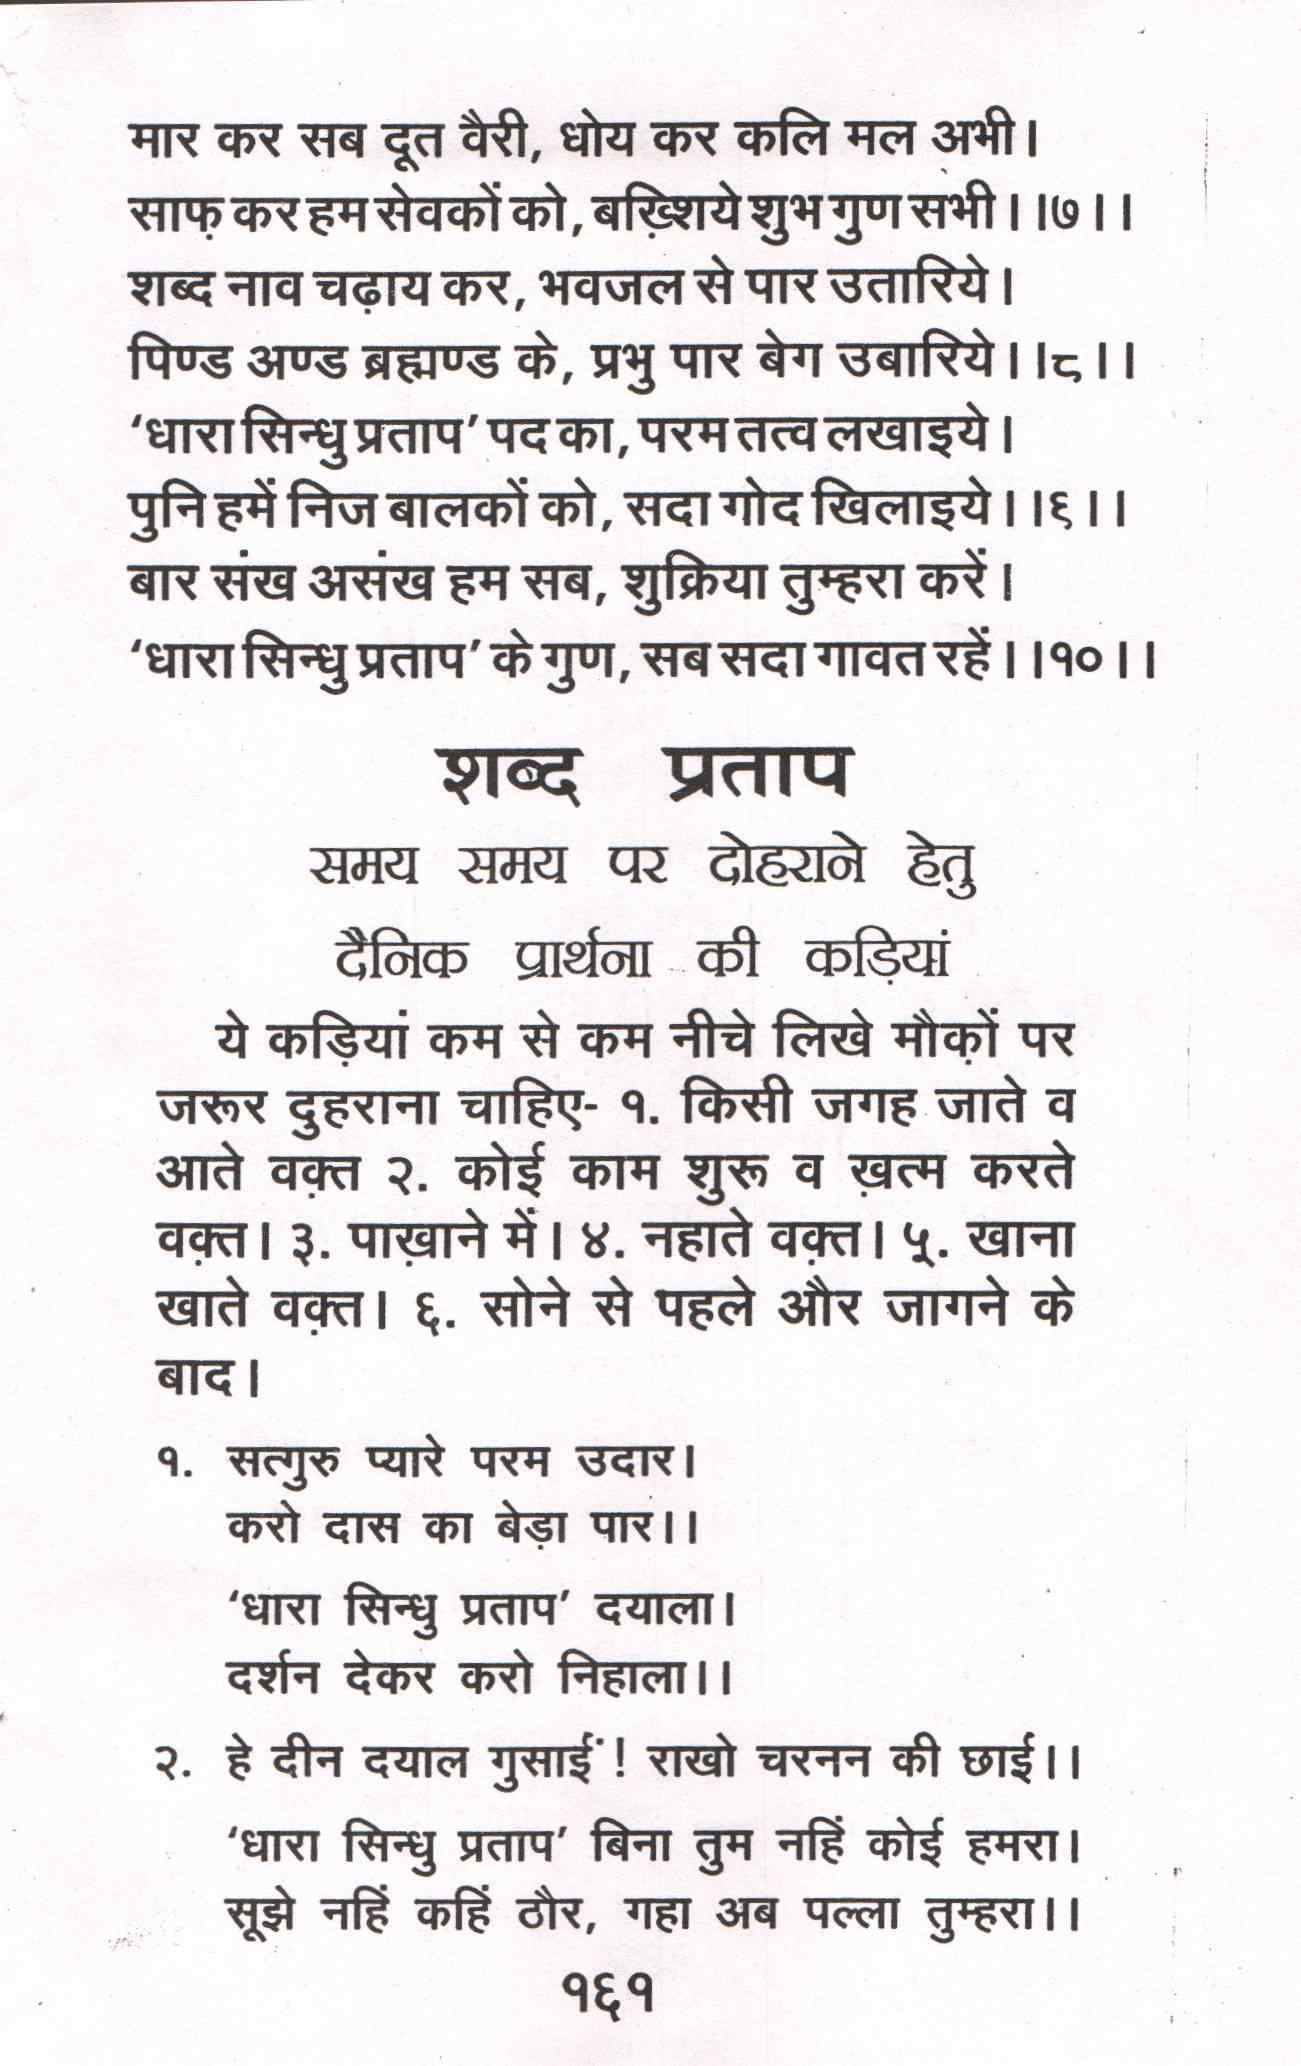 मार कर सब दूत वैरी, धोय कर कलि मल अभी।
साफ़ कर हम सेवकों को, बख़्शिये शुभ गुण सभी।।७।।
शब्द नाव चढ़ाय कर, भवजल से पार उतारिये।
पिण्ड अण्ड ब्रह्मण्ड के, प्रभु पार बेग उबारिये।।८।।
‘धारा सिन्धु प्रताप’ पद का, परम तत्व लखाइये।
पुनि हमें निज बालकों को, सदा गोद खिलाइये।।६।।
बार संख असंख हम सब, शुक्रिया तुम्हरा करें।
‘धारा सिन्धु प्रताप’ के गुण, सब सदा गावत रहें।।१०।।
शब्द प्रताप
समय समय पर दोहराने हेतु
दैनिक प्रार्थना की कड़ियां
ये कड़ियां कम से कम नीचे लिखे मौक़ों पर
जरूर दुहराना चाहिए- १. किसी जगह जाते व
आते वक़्त २. कोई काम शुरू व ख़त्म करते
वक़्त। ३. पाख़ाने में। ४. नहाते वक़्त। ५. खाना
खाते वक़्त। ६. सोने से पहले और जागने के
बाद।
१. सत्गुरु प्यारे परम उदार।
करो दास का बेड़ा पार।।
‘धारा सिन्धु प्रताप’ दयाला।
दर्शन देकर करो निहाला।।
२. हे दीन दयाल गुसाईं! राखो चरनन की छाई।।
‘धारा सिन्धु प्रताप’ बिना तुम नहिं कोई हमरा।
सूझे नहिं कहिं ठौर, गहा अब पल्ला तुम्हरा।।
१६१